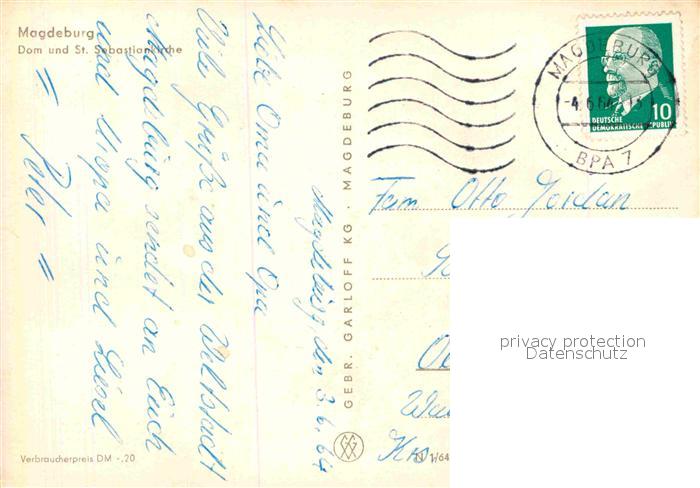 Magdeburg
Dom und St. Sebastiankirche
Magdeburg, den 3.6.64
Liebe Oma und Opa
Viele Grüße aus der
Magdeburg sendet an Euch
und Uropa und
= Peter =
Verbraucherpreis DM -.20
GEBR. GARLOFF KG · MAGDEBURG
1/64
MAGDEBURG
-4.6.64
BPA 7
10
DEUTSCHE
DEMOKRATISCHE REPUBLIK
Fam Otto Jordan
privacy protection
Datenschutz